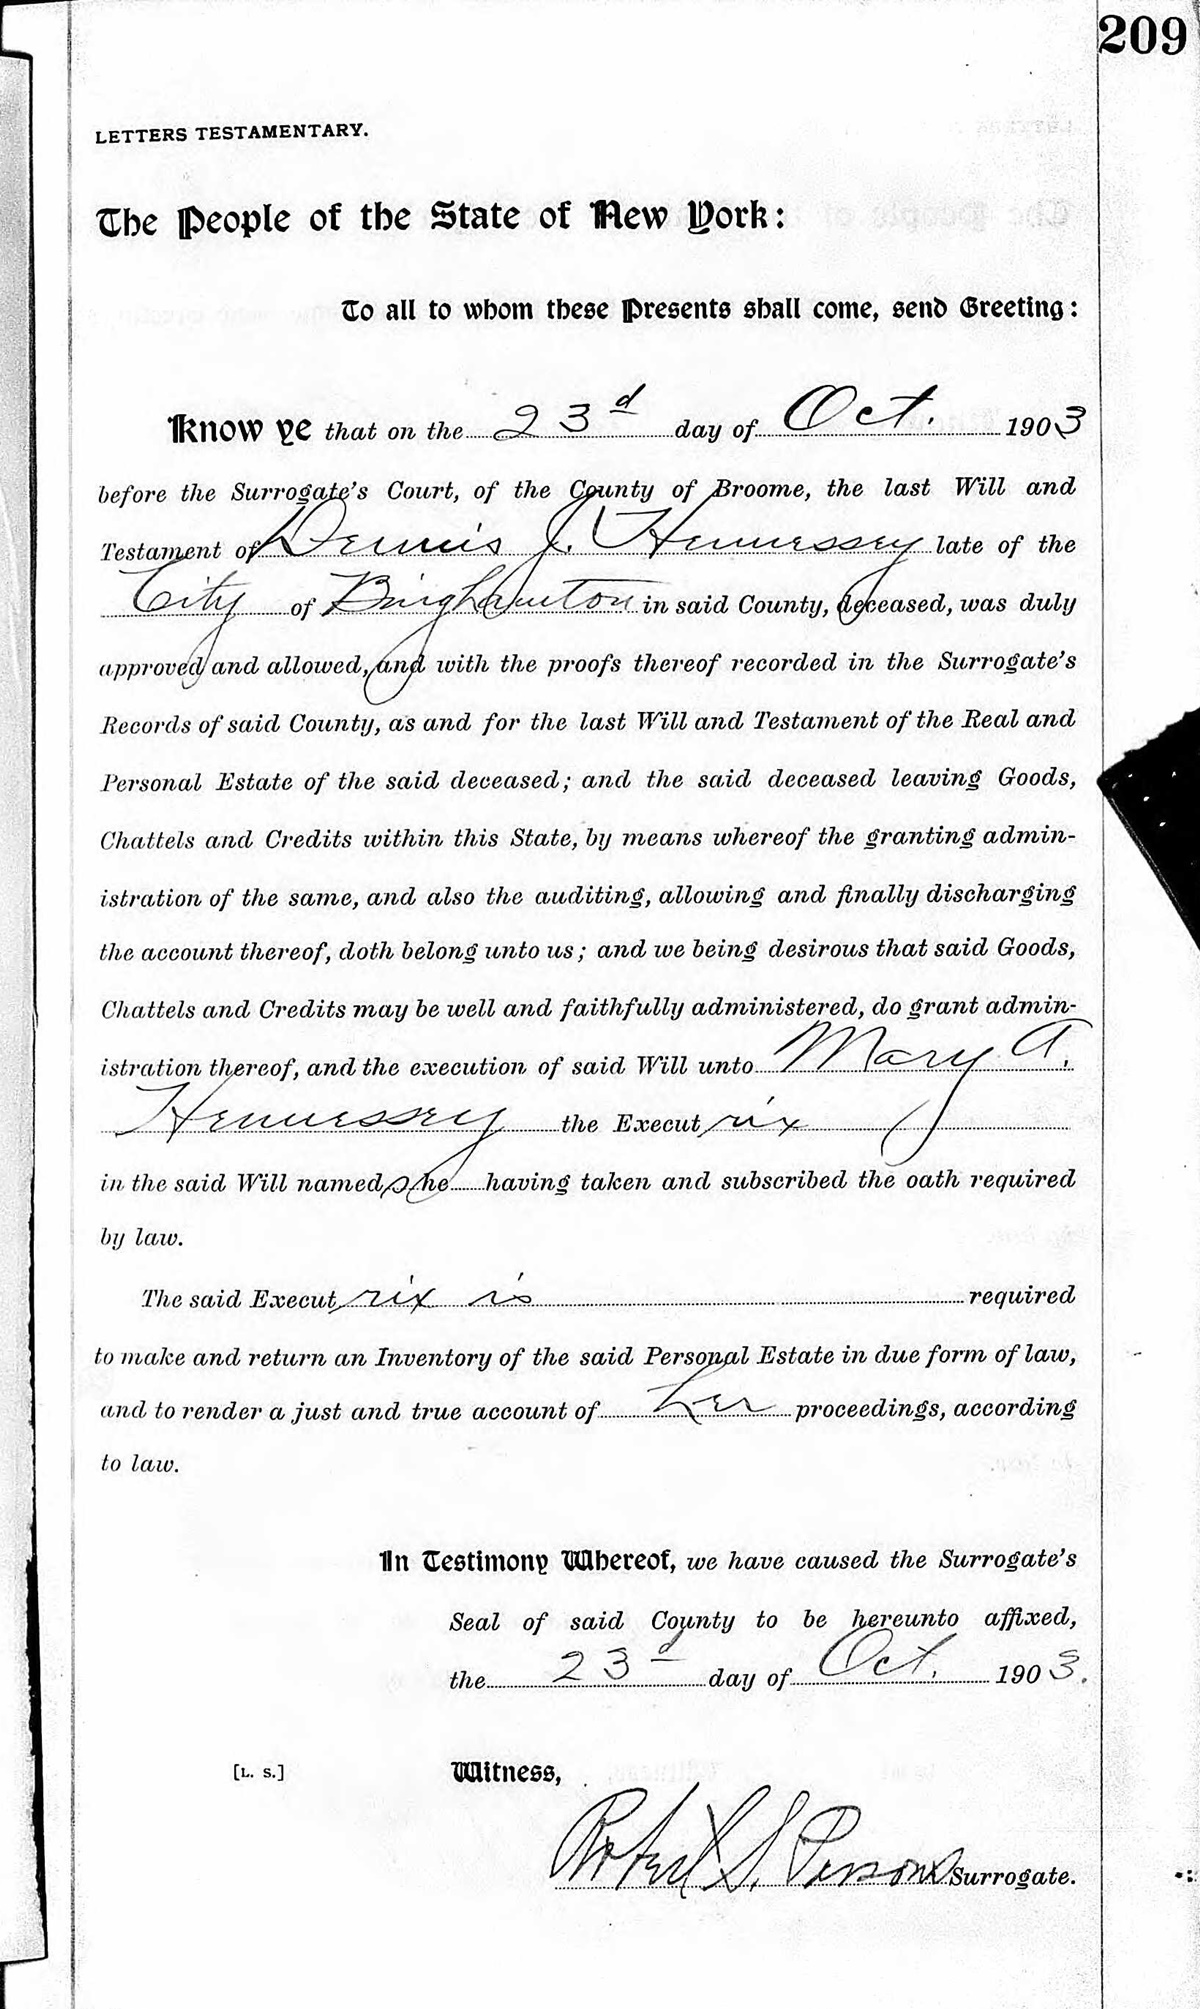 209
LETTERS TESTAMENTARY.
The People of the State of New York:
To all to whom these Presents shall come, send Greeting:
Know ye that on the 23d day of Oct. 1903
before the Surrogate's Court, of the County of Broome, the last Will and
Testament of Dennis J. Hennessey late of the
City of Binghamton in said County, deceased, was duly
approved and allowed, and with the proofs thereof recorded in the Surrogate's
Records of said County, as and for the last Will and Testament of the Real and
Personal Estate of the said deceased; and the said deceased leaving Goods,
Chattels and Credits within this State, by means whereof the granting admin-
istration of the same, and also the auditing, allowing and finally discharging
the account thereof, doth belong unto us; and we being desirous that said Goods,
Chattels and Credits may be well and faithfully administered, do grant admin-
istration thereof, and the execution of said Will unto Mary A.
Hennessey the Executrix
in the said Will named, she having taken and subscribed the oath required
by law.
The said Executrix is required
to make and return an Inventory of the said Personal Estate in due form of law,
and to render a just and true account of her proceedings, according
to law.
In Testimony Whereof, we have caused the Surrogate's
Seal of said County to be hereunto affixed,
the 23d day of Oct. 1903.
[L. S.] Witness,
Robert S. Parsons Surrogate.